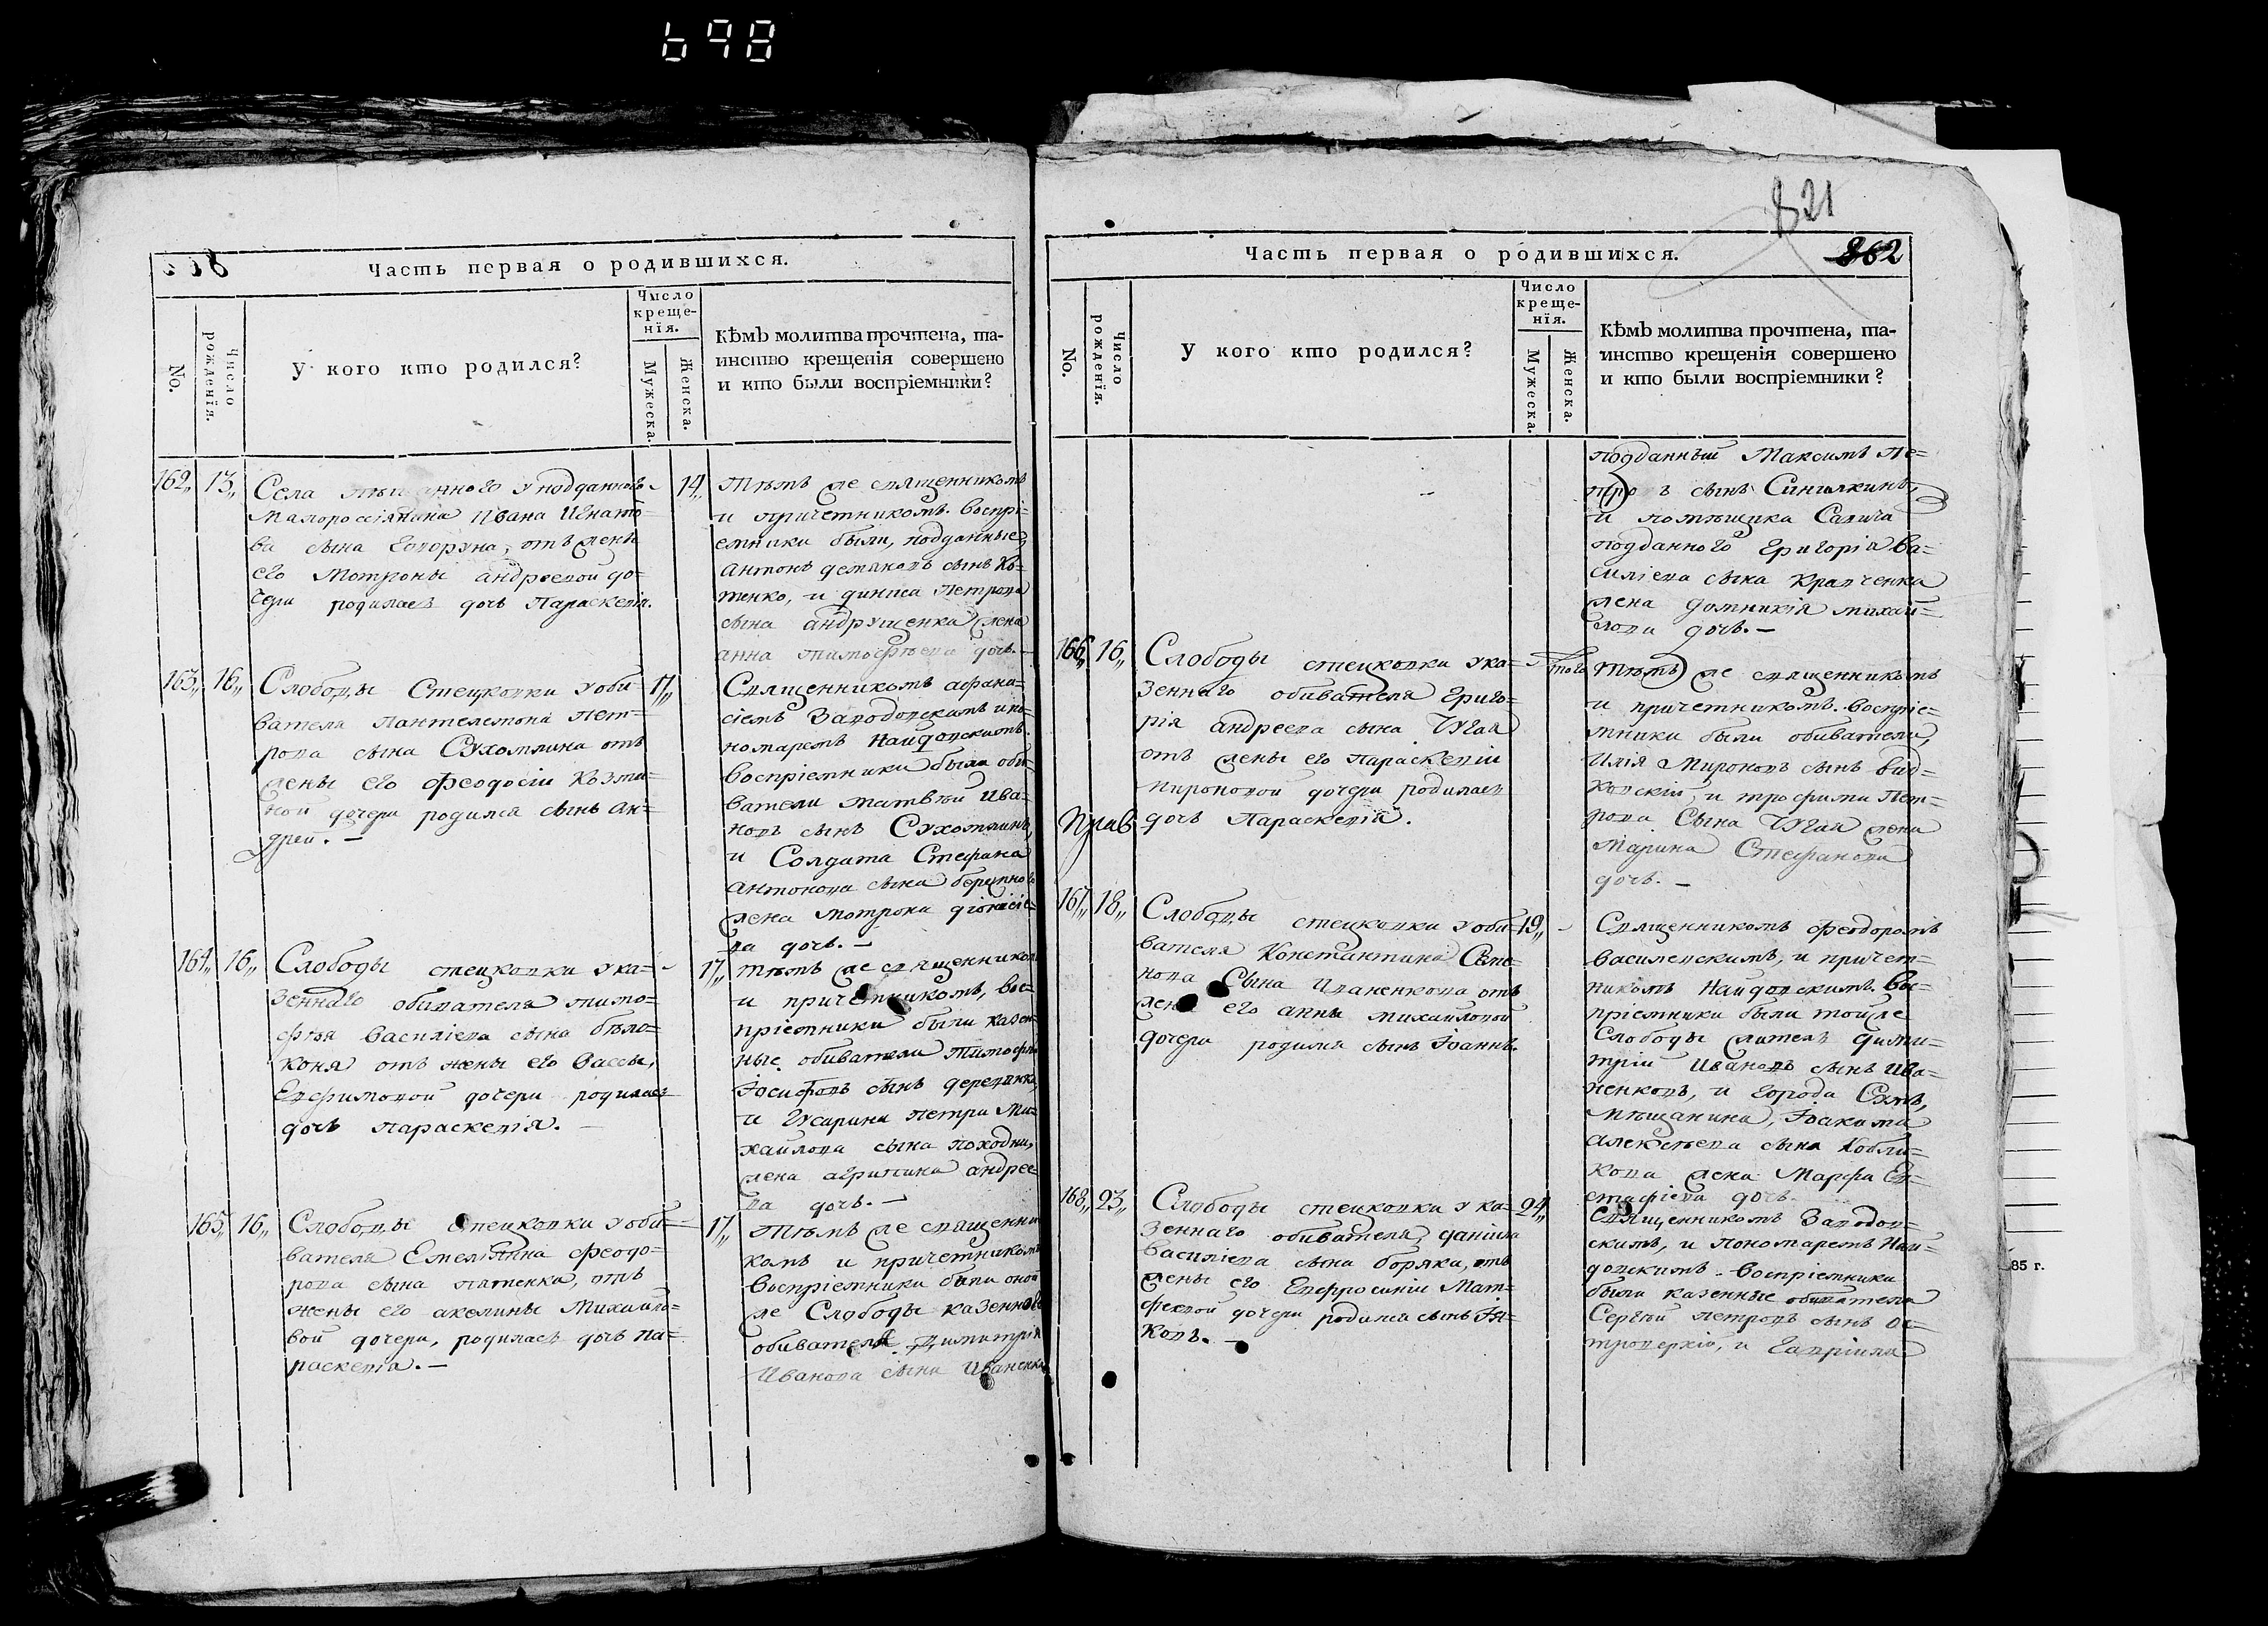 698
Часть первая о родившихся.
No.
Число рожденїя.
У кого кто родился?
Число
креще-
нїя.
Мужеска.
Женска.
Кѣмъ молитва прочтена, та-
инство крещенїя совершено
и кто были воспріемники?
162„ 13„ Села у подданного
Малороссіянина Ивана Игнато-
ва сына отъ жены
его Мотроны андреевой до-
чери родилась дочь Параскевія.
14„ Тѣмъ же священникомъ
и причетникомъ. воспрі-
емники были, подданные,
антонъ сынъ Ко-
тенко, и Петрова
сына андрущенка жена
анна тимофѣева дочь.–
163„ 16„ Слободы Стецковки у оби-
вателя Пантелемона Пет-
рова сына Сухомлина отъ
жены его Феодосіи Козми-
ной дочери родился сынъ Ан-
дрей.–
17„ Священникомъ афана-
сіемъ Заводовскимъ и по-
номаремъ Найдовскимъ.
воспріемники были оби-
ватели матвѣй Ива-
новъ сынъ Сухомлинъ,
и Солдата Стефана
антонова сына
жена мотрона діонисіе-
ва дочь.–
164„ 16„ Слободы стецковки у ка-
зеннаго обивателя тимо-
фѣя василіева сына бѣло-
коня отъ жены его Вассы,
Евфимовой дочери родилась
дочь параскевія.–
17„ тѣмъ же священником
и причетникомъ, вос-
пріемники были казен-
ные обиватели Тимофѣй
Іосифовъ сынъ
и гусарина петра Ми-
хайлова сына походни,
жена агрипина андрее-
ва дочь.–
165„ 16„ Слободы стецковки у оби-
вателя Емеліана феодо-
рова сына пятенка, отъ
жены его акелины Михайло-
вой дочери, родилась дочь Па-
раскевія.–
17„ Тѣмъ же священни
комъ и причетникомъ
воспріемники были оной
же Слободы казеннаго
обивателя димитрія
Иванова сына Иваненка
821
862
Часть первая о родившихся.
No.
Число рожденїя.
У кого кто родился?
Число
креще-
нїя.
Мужеска.
Женска.
Кѣмъ молитва прочтена, та-
инство крещенїя совершено
и кто были воспріемники?
подданный Максимъ Пе-
сынъ Синилкинъ,
и помѣщика Савича
подданного григорія Ва-
силіева сына Кравченка
жена домникія михай-
лова дочь.–
166„ 16„ Слободы стецковки у ка-
зеннаго обивателя Григо-
рія андреева сына Чугая
отъ жены его параскевіи
мироновой дочери родилась
дочь Параскевія.
того
Тѣмъ же священникомъ
и причетникомъ. воспріе-
мники были обиватели,
Илія Мироновъ сынъ
и трофима Пет-
рова Сына Чугая жена
Марина Стефанова
дочь.–
167„ 18„ Слободы стецковки у оби-
вателя Константина Семе-
нова Сына Иваненкова отъ
жены его анны михайловой
дочери родился сынъ Іоаннъ.
19„ Священникомъ Феодоромъ
василевскимъ, и причет-
никомъ Найдовскимъ. Вос-
пріемники были той же
Слободы житель дими-
трій Ивановъ сынъ Ива-
ненковъ, и города Сумъ,
мѣщанина, Іоакима
алексѣева сына
жена Марфа Ев-
стафіева дочь.
168„ 23„ Слободы стецковки у ка-
зеннаго обивателя, даніила
василіева сына боряка, отъ
жены его Евфросиніи Мат-
феевой дочери родился сынъ Іа-
ковъ.–
24„ Священникомъ Заводов-
скимъ, и пономаремъ Най-
довскимъ. воспріемники
были казенные обиватели
Сергѣй петровъ сынъ Ос-
и Гавріила
85 г.